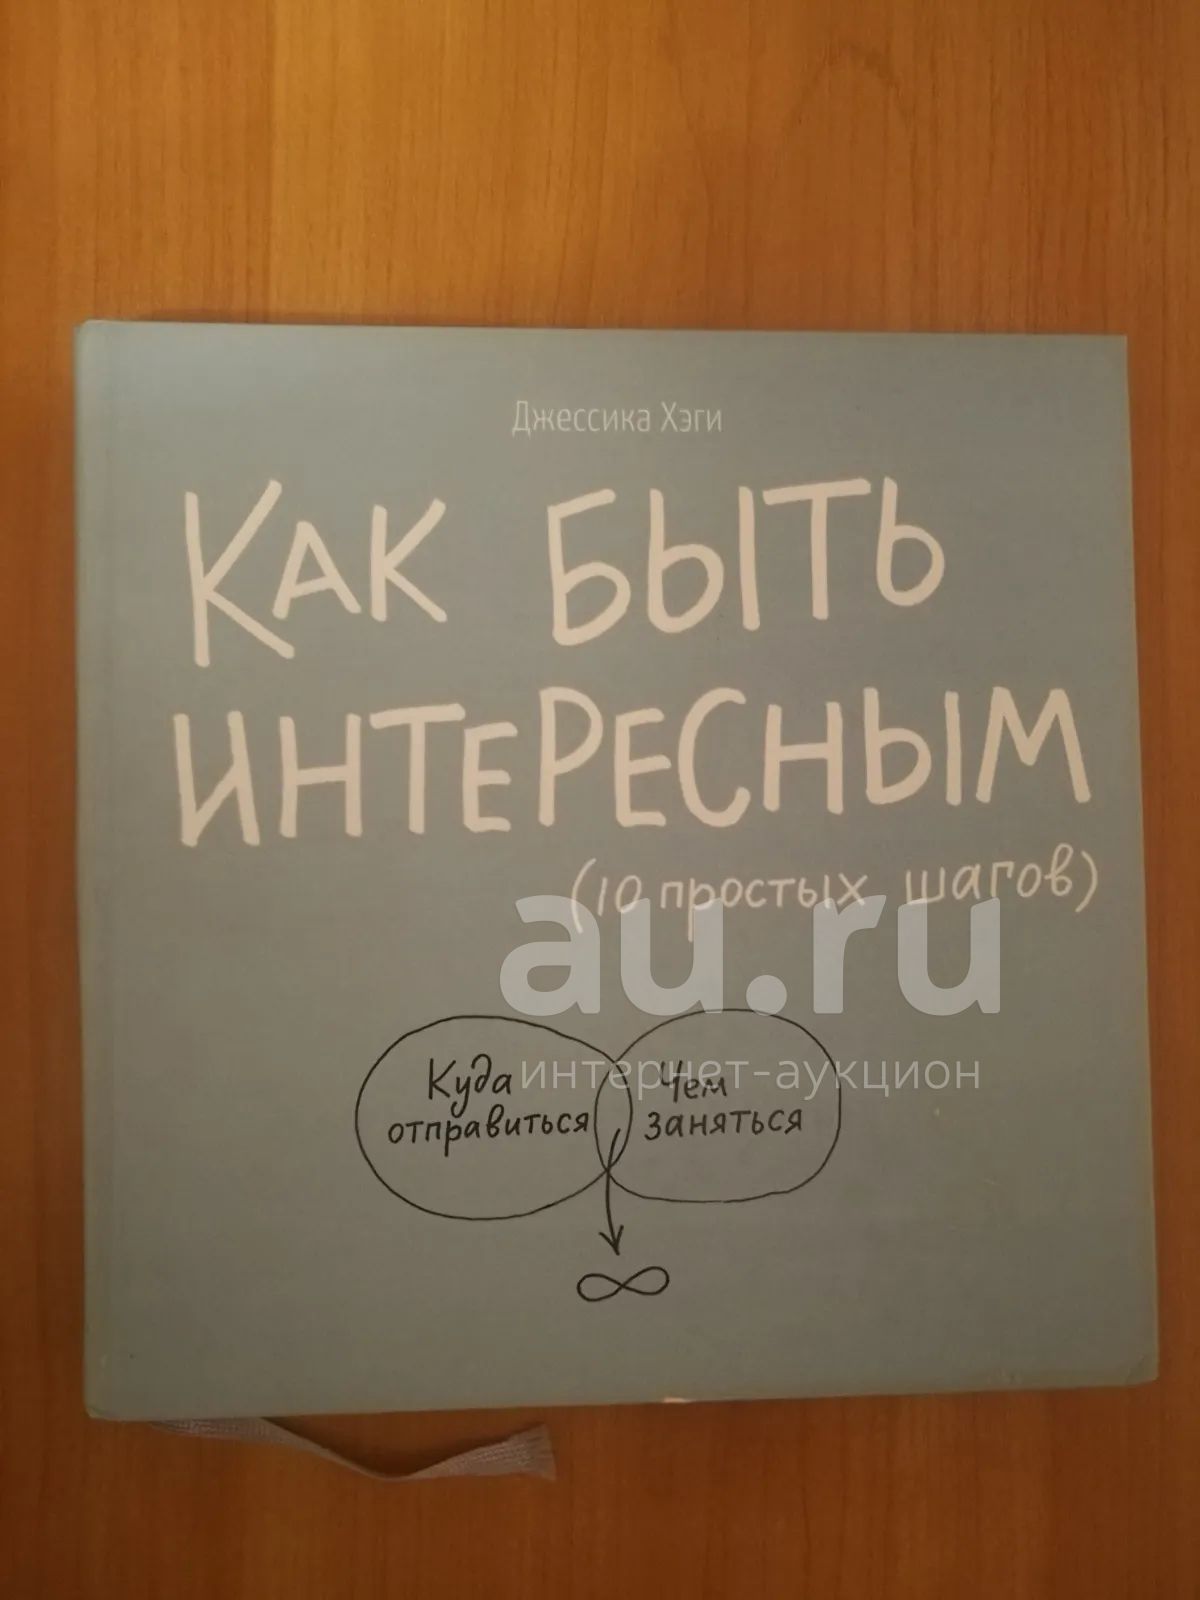 Джессика Хэги
Как быть
интересным
(10 простых шагов)
au.ru
интернет-аукцион
Куда
отправиться
Чем
заняться
∞